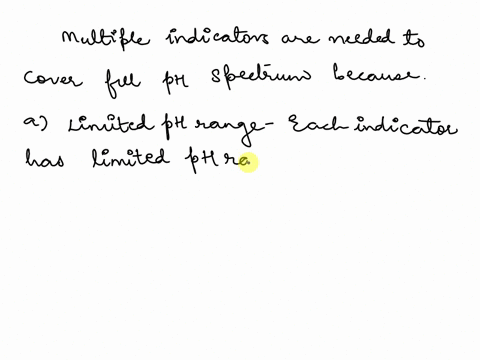 Multiple indicators are needed to
cover full pH spectrum because.
a) Limited pH range - Each indicator
has limited pH ra